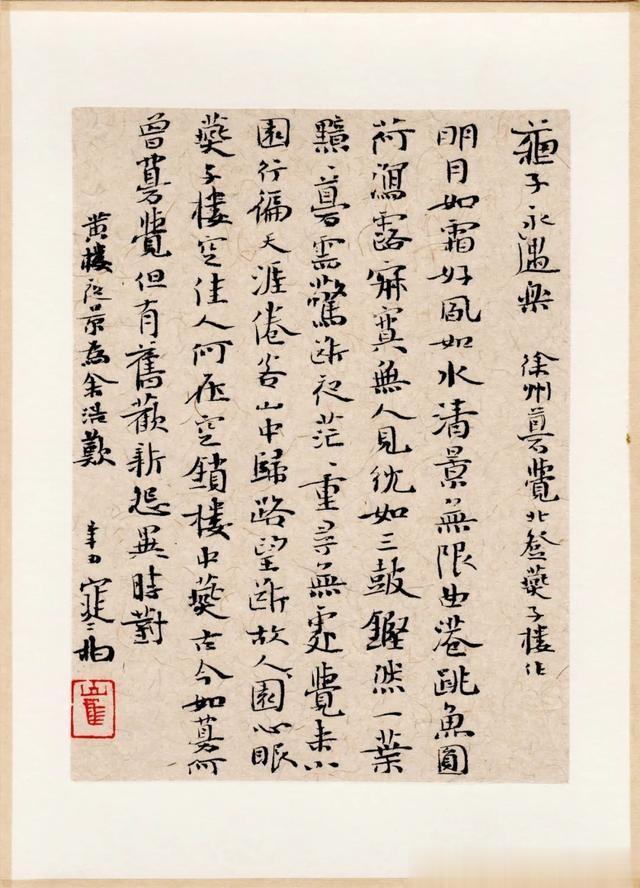 蘇子永遇樂 徐州夢覺北登燕子樓作
明月如霜好風如水清景無限曲港跳魚圓
荷瀉露寂寞無人見紞如三鼓鏗然一葉
黯、夢雲驚断夜茫、重尋無處覺来小
園行徧天涯倦客山中歸路望断故人園心眼
燕子樓空佳人何在空鎖樓中燕古今如夢何
曾夢覺但有舊歡新怨異時對
黄樓夜景為余浩歎 辛丑